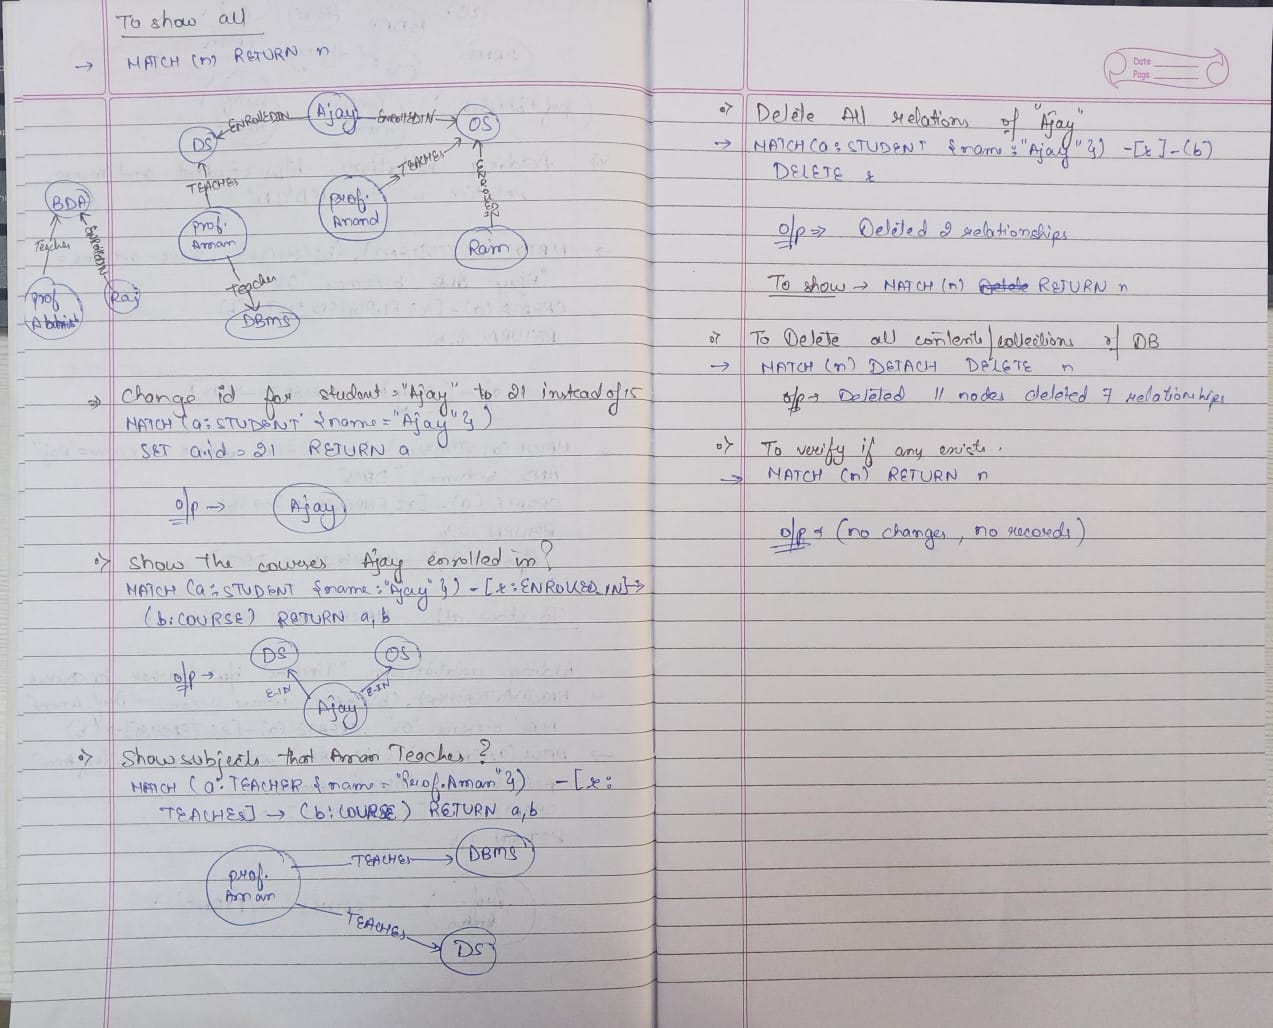 To show all
→ MATCH (n) RETURN n
Ajay
ENROLLEDIN
ENROLLEDIN
DS
OS
TEACHES
TEACHES
ENROLLEDIN
BDA
prof. Aman
prof. Anand
Ram
Teaches
ENROLLEDIN
Teaches
Prof
Raj
DBMS
⇒ Change id for student = "Ajay" to 21 instead of 15
MATCH (a: STUDENT {name = "Ajay"})
SET a.id = 21 RETURN a
o/p → Ajay
Show the courses Ajay enrolled in?
MATCH (a: STUDENT {name: "Ajay"}) - [r: ENROLLED_IN] →
(b: COURSE) RETURN a, b
DS OS
o/p →
E-IN E-IN
Ajay
Show subjects that Aman Teaches?
MATCH (a: TEACHER {name = "Prof. Aman"}) - [r:
TEACHES] → (b: COURSE) RETURN a, b
TEACHES → DBMS
prof. Aman
TEACHES
DS
Date
Page
Delete All relations of "Ajay"
→ MATCH (a: STUDENT {name: "Ajay"}) - [r] - (b)
DELETE r
o/p ⇒ Deleted 2 relationships
To show → MATCH (n) Delete RETURN n
To Delete all contents/collections of DB
→ MATCH (n) DETACH DELETE n
o/p → Deleted 11 nodes deleted 7 relationships
To verify if any exists.
→ MATCH (n) RETURN n
o/p → (no changes, no records)